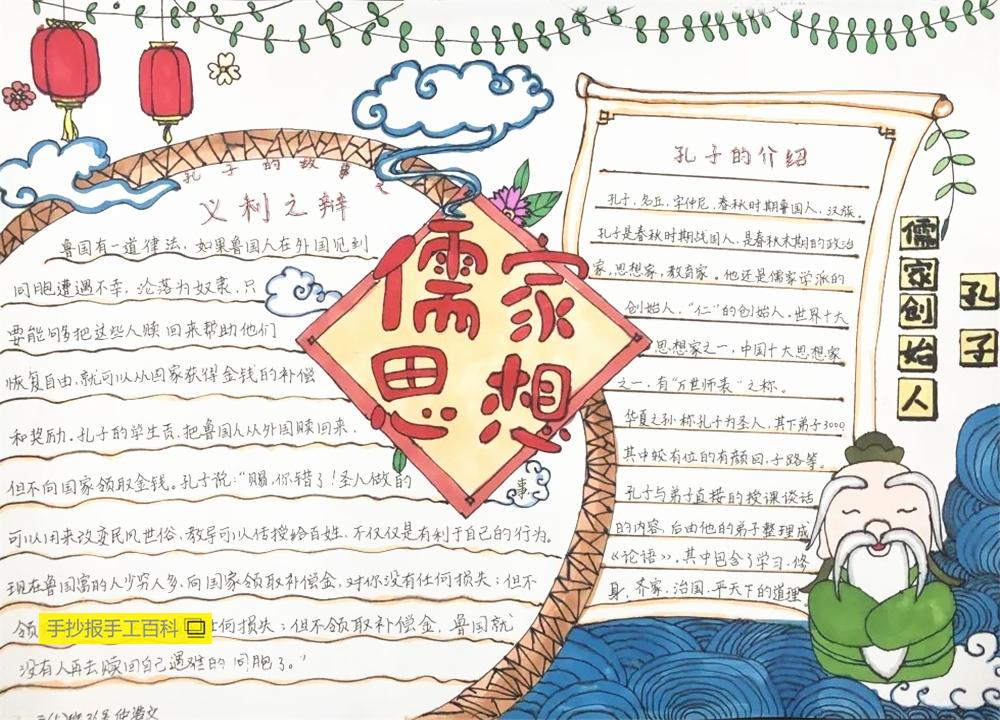 孔子的故事
义利之辩
鲁国有一道律法,如果鲁国人在外国见到
同胞遭遇不幸,沦落为奴隶,只
要能够把这些人赎回来帮助他们
恢复自由,就可以从国家获得金钱的补偿
和奖励。孔子的学生贡,把鲁国人从外国赎回来,
但不向国家领取金钱。孔子说:"赐,你错了!圣人做的
事,
可以用来改变民风世俗,教导可以传授给百姓,不仅仅是有利于自己的行为。
现在鲁国富的人少穷人多,向国家领取补偿金,对你没有任何损失;但不
领
任何损失;但不领取补偿金,鲁国就
没有人再去赎回自己遇难的同胞了。"
手抄报手工百科
儒家
思想
孔子的介绍
孔子,名丘,字仲尼,春秋时期鲁国人,汉族。
孔子是春秋时期战国人,是春秋末期的政治
家,思想家,教育家。他还是儒家学派的
创始人,"仁"的创始人。世界十大
思想家之一,中国十大思想家
之一,有"万世师表"之称。
华夏之孙称孔子为圣人,其下弟子3000
其中较有位的有颜回,子路等。
孔子与弟子直接的授课谈话
的内容,后由他的弟子整理成
《论语》,其中包含了学习,修
身,齐家,治国,平天下的道理
儒家创始人
孔子